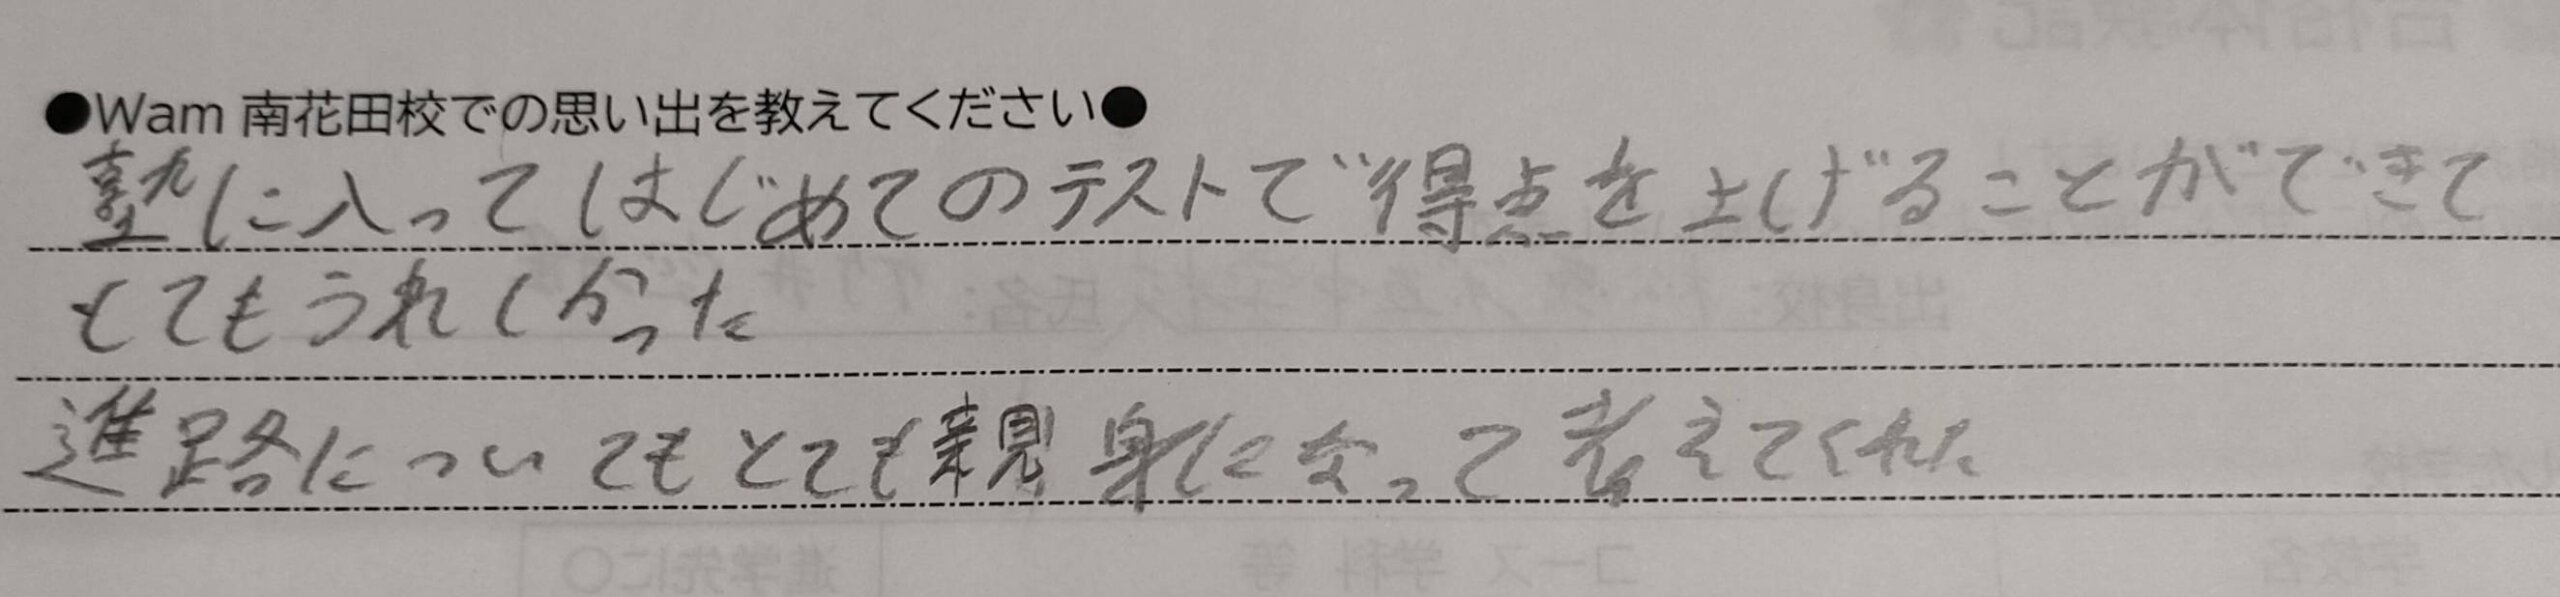 ●Wam 南花田校での思い出を教えてください●
塾に入ってはじめてのテストで得点を上げることができて
とてもうれしかった
進路についてもとても親身になって考えてくれた